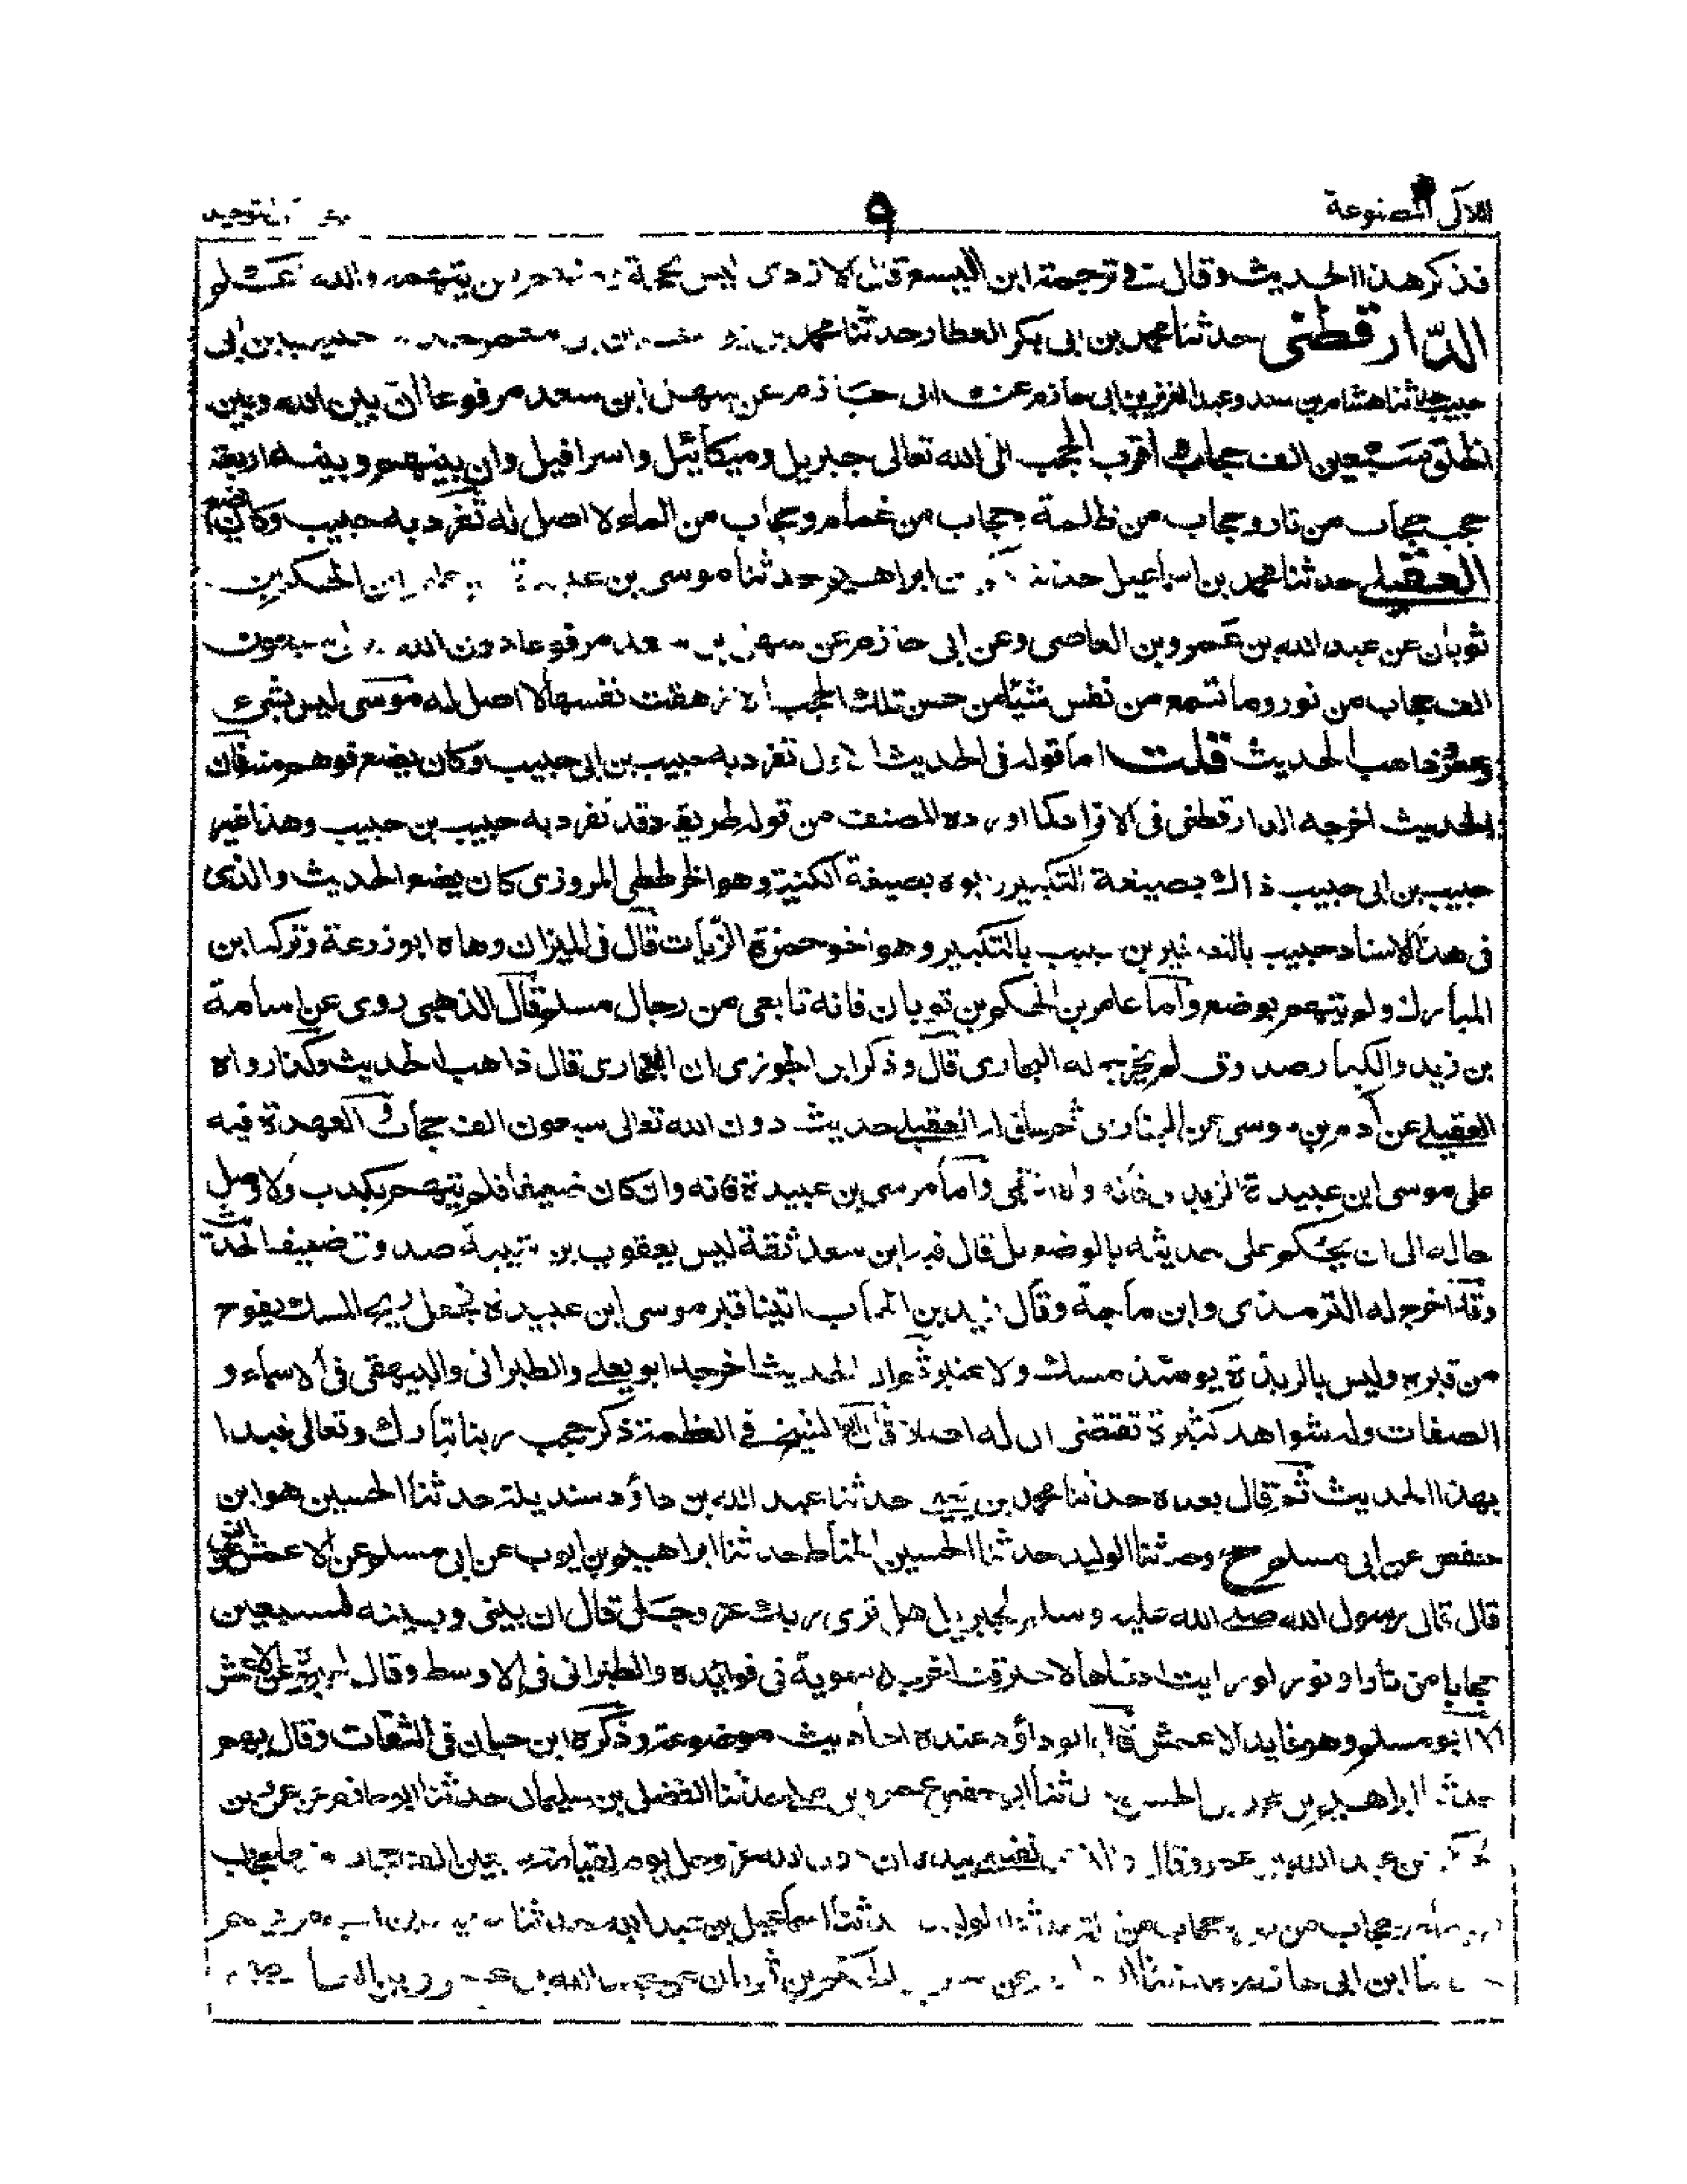 اللآلى المصنوعة
٩
التوحيد
فذكر هذا الحديث وقال فى ترجمة ابن اليسع قال الازدى ليس بحجة يتهمه والله اعلم
الدّارقطنى حدثنا محمد بن ابى بكر العطار حدثنا محمد بن حبيب بن ابى
حبيب حدثنا هشام بن سعد وعبد العزيز بن ابى حازم عن ابى حازم عن سهل ابن سعد مرفوعا ان بين الله وبين
الخلق سبعين الف حجاب اقرب الحجب الى الله تعالى جبريل وميكائيل واسرافيل وان بينهم وبينه اربعة
حجب حجاب من نار وحجاب من ظلمة وحجاب من غمام وحجاب من الماء لا اصل له تفرد به حبيب وكان يضع
العقيلى حدثنا محمد بن اسماعيل حدثنا بن ابراهيم حدثنا موسى بن عبيدة ابن الحكم بن
ثوبان عن عبد الله بن عمرو بن العاصى وعن ابى حازم عن سهل بن سعد مرفوعا دون الله سبعون
الف حجاب من نور وما تسمع من نفس شيئا من حسن تلك الحجب الا زهقت نفسها لا اصل له موسى ليس بشىء
وعمر ذاهب الحديث قلت اما قوله فى الحديث الاول تفرد به حبيب بن ابى حبيب وكان يضع فوهم منه فان
الحديث اخرجه الدارقطنى فى الافراد كما اورده المصنف من قوله طريقه وقد تفرد به حبيب بن حبيب وهذا غير
حبيب بن ابى حبيب ذاك بصيغة التكبير وابوه بصيغة الكنية وهو الخرططى المروزى كان يضع الحديث والذى
فى هذا الاسناد حبيب بالتصغير بن حبيب بالتكبير وهو اخو حمزة الزيات قال فى الميزان وهاه ابو زرعة وتركه ابن
المبارك ولم يتهم بوضع واما عامر بن الحكم بن ثوبان فانه تابعى من رجال مسلم قال الذهبى روى عن اسامة
بن زيد والكبار صدوق لم يخرج له البخارى قال وذكر ابن الجوزى ان البخارى قال ذاهب الحديث وكذا رواه
العقيلى عن آدم بن موسى عن البخارى ثم ساق له العقيلى حديث دون الله تعالى سبعون الف حجاب قال العهدة فيه
على موسى ابن عبيدة الزبدى فانه واه انتهى واما موسى بن عبيدة فانه وان كان ضعيفا فلم يتهم بكذب ولا وصل
حاله الى ان يحكم على حديثه بالوضع بل قال فيه ابن سعد ثقة ليس يعقوب بن شيبة صدوق ضعيف الحديث
وقد اخرج له الترمذى وابن ماجة وقال زيد بن الحباب اتينا قبر موسى ابن عبيدة فجعل ريح المسك يفوح
من قبره وليس بالربذة يومئذ مسك ولا عنبر ثم ان الحديث اخرجه ابو يعلى والطبرانى والبيهقى فى الاسماء و
الصفات وله شواهد كثيرة تقتضى ان له اصلا قال ابو الشيخ فى العظمة ذكر حجب ربنا تبارك وتعالى فبدا
بهذا الحديث ثم قال بعده حدثنا محمد بن يحيى حدثنا عبد الله بن داؤد سنديلة حدثنا الحسين هو ابن
حفص عن ابى مسلم ح وحدثنا الوليد حدثنا الحسين المناط حدثنا ابراهيم بن ايوب عن ابى مسلم عن الاعمش عن
قال قال رسول الله صلى الله عليه وسلم لجبريل هل ترى ربك عز وجل قال ان بينى وبينه لسبعين
حجابا من نار او نور لو رايت ادناها لاحترقت اخرجه سمويه فى فوائده والطبرانى فى الاوسط وقال لم يروه عن الاعمش
الا ابو مسلم وهو قايد الاعمش قال ابو داؤد عنده احاديث موضوعة وذكره ابن حبان فى الثقات وقال يهم
حدثنا ابراهيم بن محمد بن الحسن حدثنا ابى حفص عمرو بن على حدثنا الفضل بن سليمان حدثنا ابو حازم عن عمر بن
الحكم عن عبد الله بن عمرو قال والذى نفسى بيده ان دون الله عز وجل يوم القيامة سبعين الف حجاب
ظلمة وحجاب من نور وحجاب من حدثنا الوليد حدثنا اسماعيل بن عبد الله حدثنا سعيد بن ابى مريم
حدثنا ابن ابى حازم حدثنا ابى عن عمر بن الحكم بن ثوبان عن عبد الله بن عمرو بن العاصى